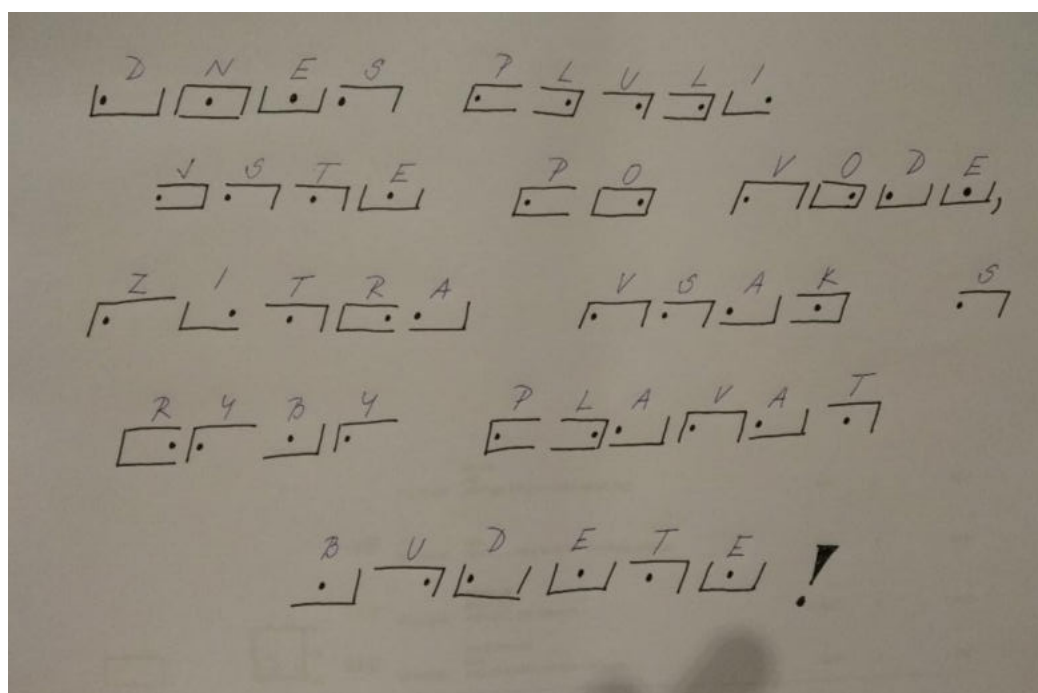 DNES PLULI
JSTE PO VODE,
ZITRA VSAK S
RYBY PLAVAT
BUDETE!